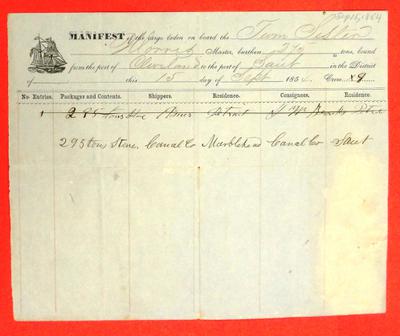 Sept 15, 1854
MANIFEST of the cargo laden on board the Twin Sister
Morris Master, burthen 295 tons, bound
from the port of Cleveland to the port of Saut in the District
of this 15 day of Sept 1854. Crew 9
No. Entries. Packages and Contents. Shippers. Residence. Consignees. Residence.
1 295 tons Stone Detroit
295 tons Stone, Canal Co Marblehead Canal Co Saut